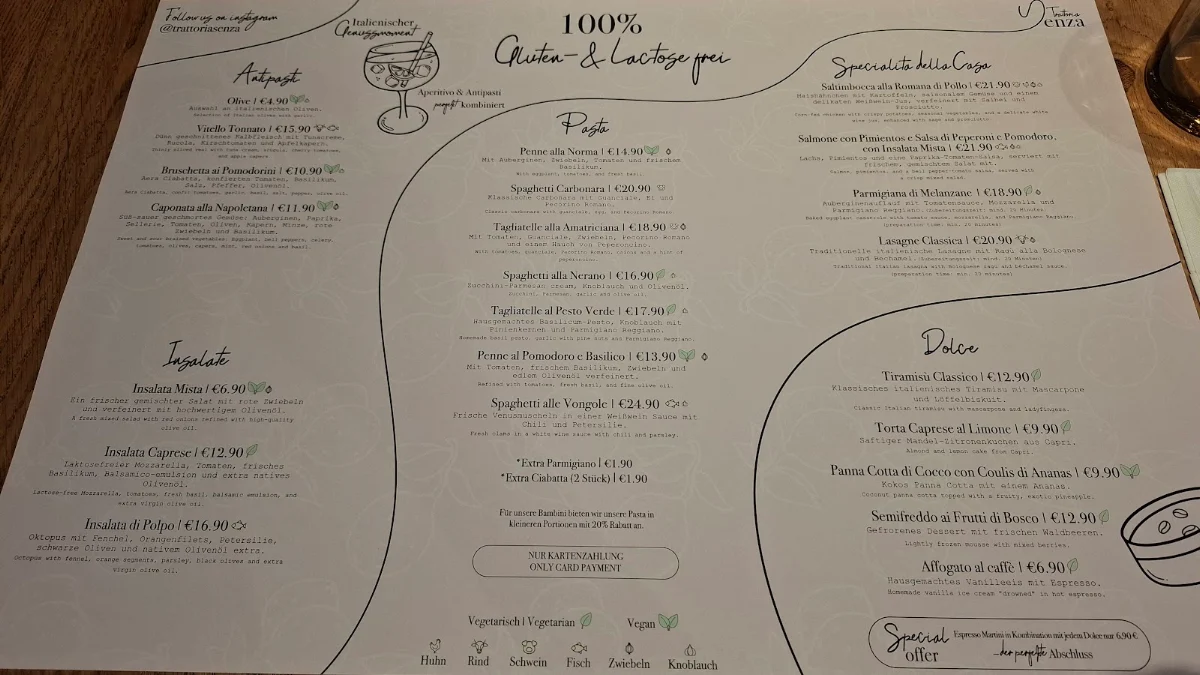 Follow us on instagram
@trattoriasenza
Italienischer
Genussmoment
Aperitivo & Antipasti
perfekt kombiniert
100%
Gluten- & Lactose frei
Trattoria
Senza
Antipasti
Olive | €4.90
Auswahl an italienischen Oliven.
Selection of Italian olives with garlic.
Vitello Tonnato | €15.90
Dünn geschnittenes Kalbfleisch mit Tunacreme,
Rucola, Kirschtomaten und Apfelkapern.
Thinly sliced veal with tuna cream, arugula, cherry tomatoes,
and apple capers
Bruschetta ai Pomodorini | €10.90
Aera Ciabatta, konfierte Tomaten, Basilikum,
Salz, Pfeffer, Olivenöl.
Aera Ciabatta, confit tomatoes, garlic basil, salt, pepper, olive oil.
Caponata alla Napoletana | €11.90
Süß-sauer geschmortes Gemüse: Auberginen, Paprika,
Sellerie, Tomaten, Oliven, Kapern, Minze, rote
Zwiebeln und Basilikum.
Sweet and sour braised vegetables: Eggplant, bell peppers, celery,
tomatoes, olives, capers, mint, red onions and basil.
Insalate
Insalata Mista | €6.90
Ein frischer gemischter Salat mit rote Zwiebeln
und verfeinert mit hochwertiges Olivenöl.
A fresh mixed salad with red onions refined with high-quality
olive oil.
Insalata Caprese | €12.90
Laktosefreier Mozzarella, Tomaten, frisches
Basilikum, Balsamico-emulsion und extra natives
Olivenöl.
Lactose-free Mozzarella, tomatoes, fresh basil, balsamic emulsion, and
extra virgin olive oil.
Insalata di Polpo | €16.90
Oktopus mit Fenchel, Orangenfilets, Petersilie,
schwarze Oliven und nativem Olivenöl extra.
Octopus with fennel, orange segments, parsley, black olives and extra
virgin olive oil.
Pasta
Penne alla Norma | €14.90
Mit Auberginen, Zwiebeln, Tomaten und frischem
Basilikum.
With eggplant, tomatoes, and fresh basil.
Spaghetti Carbonara | €20.90
Klassische Carbonara mit Guanciale, Ei und
Pecorino Romano.
Classic carbonara with guanciale, egg, and Pecorino Romano
Tagliatelle alla Amatriciana | €18.90
Mit Tomaten, Guanciale, Zwiebeln, Pecorino Romano
und einem Hauch von Peperoncino.
With tomatoes, guanciale, Pecorino Romano, onions and a hint of
peperoncino.
Spaghetti alla Nerano | €16.90
Zucchini-Parmesan cream, Knoblauch und Olivenöl.
Zucchini, Parmesan, garlic and olive oil.
Tagliatelle al Pesto Verde | €17.90
Hausgemachtes Basilicum-Pesto, Knoblauch mit
Pinienkernen und Parmigiano Reggiano.
Homemade basil pesto, garlic with pine nuts and Parmigiano Reggiano
Penne al Pomodoro e Basilico | €13.90
Mit Tomaten, frischem Basilikum, Zwiebeln und
edlem Olivenöl verfeinert.
Refined with tomatoes, fresh basil, and fine olive oil.
Spaghetti alle Vongole | €24.90
Frische Venusmuscheln in einer Weißwein Sauce mit
Chili und Petersilie.
Fresh clams in a white wine sauce with chili and parsley.
*Extra Parmigiano | €1.90
*Extra Ciabatta (2 Stück) | €1.90
Für unsere Bambini bieten wir unsere Pasta in
kleineren Portionen mit 20% Rabatt an.
NUR KARTENZAHLUNG
ONLY CARD PAYMENT
Vegetarisch | Vegetarian
Vegan
Huhn
Rind
Schwein
Fisch
Zwiebeln
Knoblauch
Specialità della Casa
Saltimbocca alla Romana di Pollo | €21.90
Maishähnchen mit Kartoffeln, saisonalem Gemüse und einem
delikaten Weißwein-Jus, verfeinert mit Salbei und
Prosciutto.
Corn-fed chicken with crispy potatoes, seasonal vegetables, and a delicate white
wine jus, enhanced with sage and prosciutto.
Salmone con Pimientos e Salsa di Peperoni e Pomodoro,
con Insalata Mista | €21.90
Lachs, Pimientos und eine Paprika-Tomaten-Salsa, serviert mit
frischem, gemischtem Salat mit.
Salmon, pimientos, and a bell pepper-tomato salsa, served with
a crisp mixed salad.
Parmigiana di Melanzane | €18.90
Auberginenauflauf mit Tomatensauce, Mozzarella und
Parmigiano Reggiano. (Zubereitungszeit: mind. 25 Minuten)
Baked eggplant casserole with tomato sauce, mozzarella, and Parmigiano Reggiano.
(preparation time: min. 25 minutes)
Lasagne Classica | €20.90
Traditionelle italienische Lasagne mit Ragù alla Bolognese
und Bechamel. (Zubereitungszeit: mind. 35 Minuten)
Traditional Italian lasagna with Bolognese ragù and béchamel sauce.
(preparation time: min. 35 minutes)
Dolce
Tiramisù Classico | €12.90
Klassisches italienisches Tiramisu mit Mascarpone
und Löffelbiskuit.
Classic Italian tiramisu with mascarpone and ladyfingers.
Torta Caprese al Limone | €9.90
Saftiger Mandel-Zitronenkuchen aus Capri.
Almond and lemon cake from Capri.
Panna Cotta di Cocco con Coulis di Ananas | €9.90
Kokos Panna Cotta mit einem Ananas.
Coconut panna cotta topped with a fruity, exotic pineapple.
Semifreddo ai Frutti di Bosco | €12.90
Gefrorenes Dessert mit frischen Waldbeeren.
Lightly frozen mousse with mixed berries.
Affogato al caffè | €6.90
Hausgemachtes Vanilleeis mit Espresso.
Homemade vanilla ice cream "drowned" in hot espresso.
Special
offer
Espresso Martini in Kombination mit jedem Dolce nur 6,90€
-der perfekte Abschluss